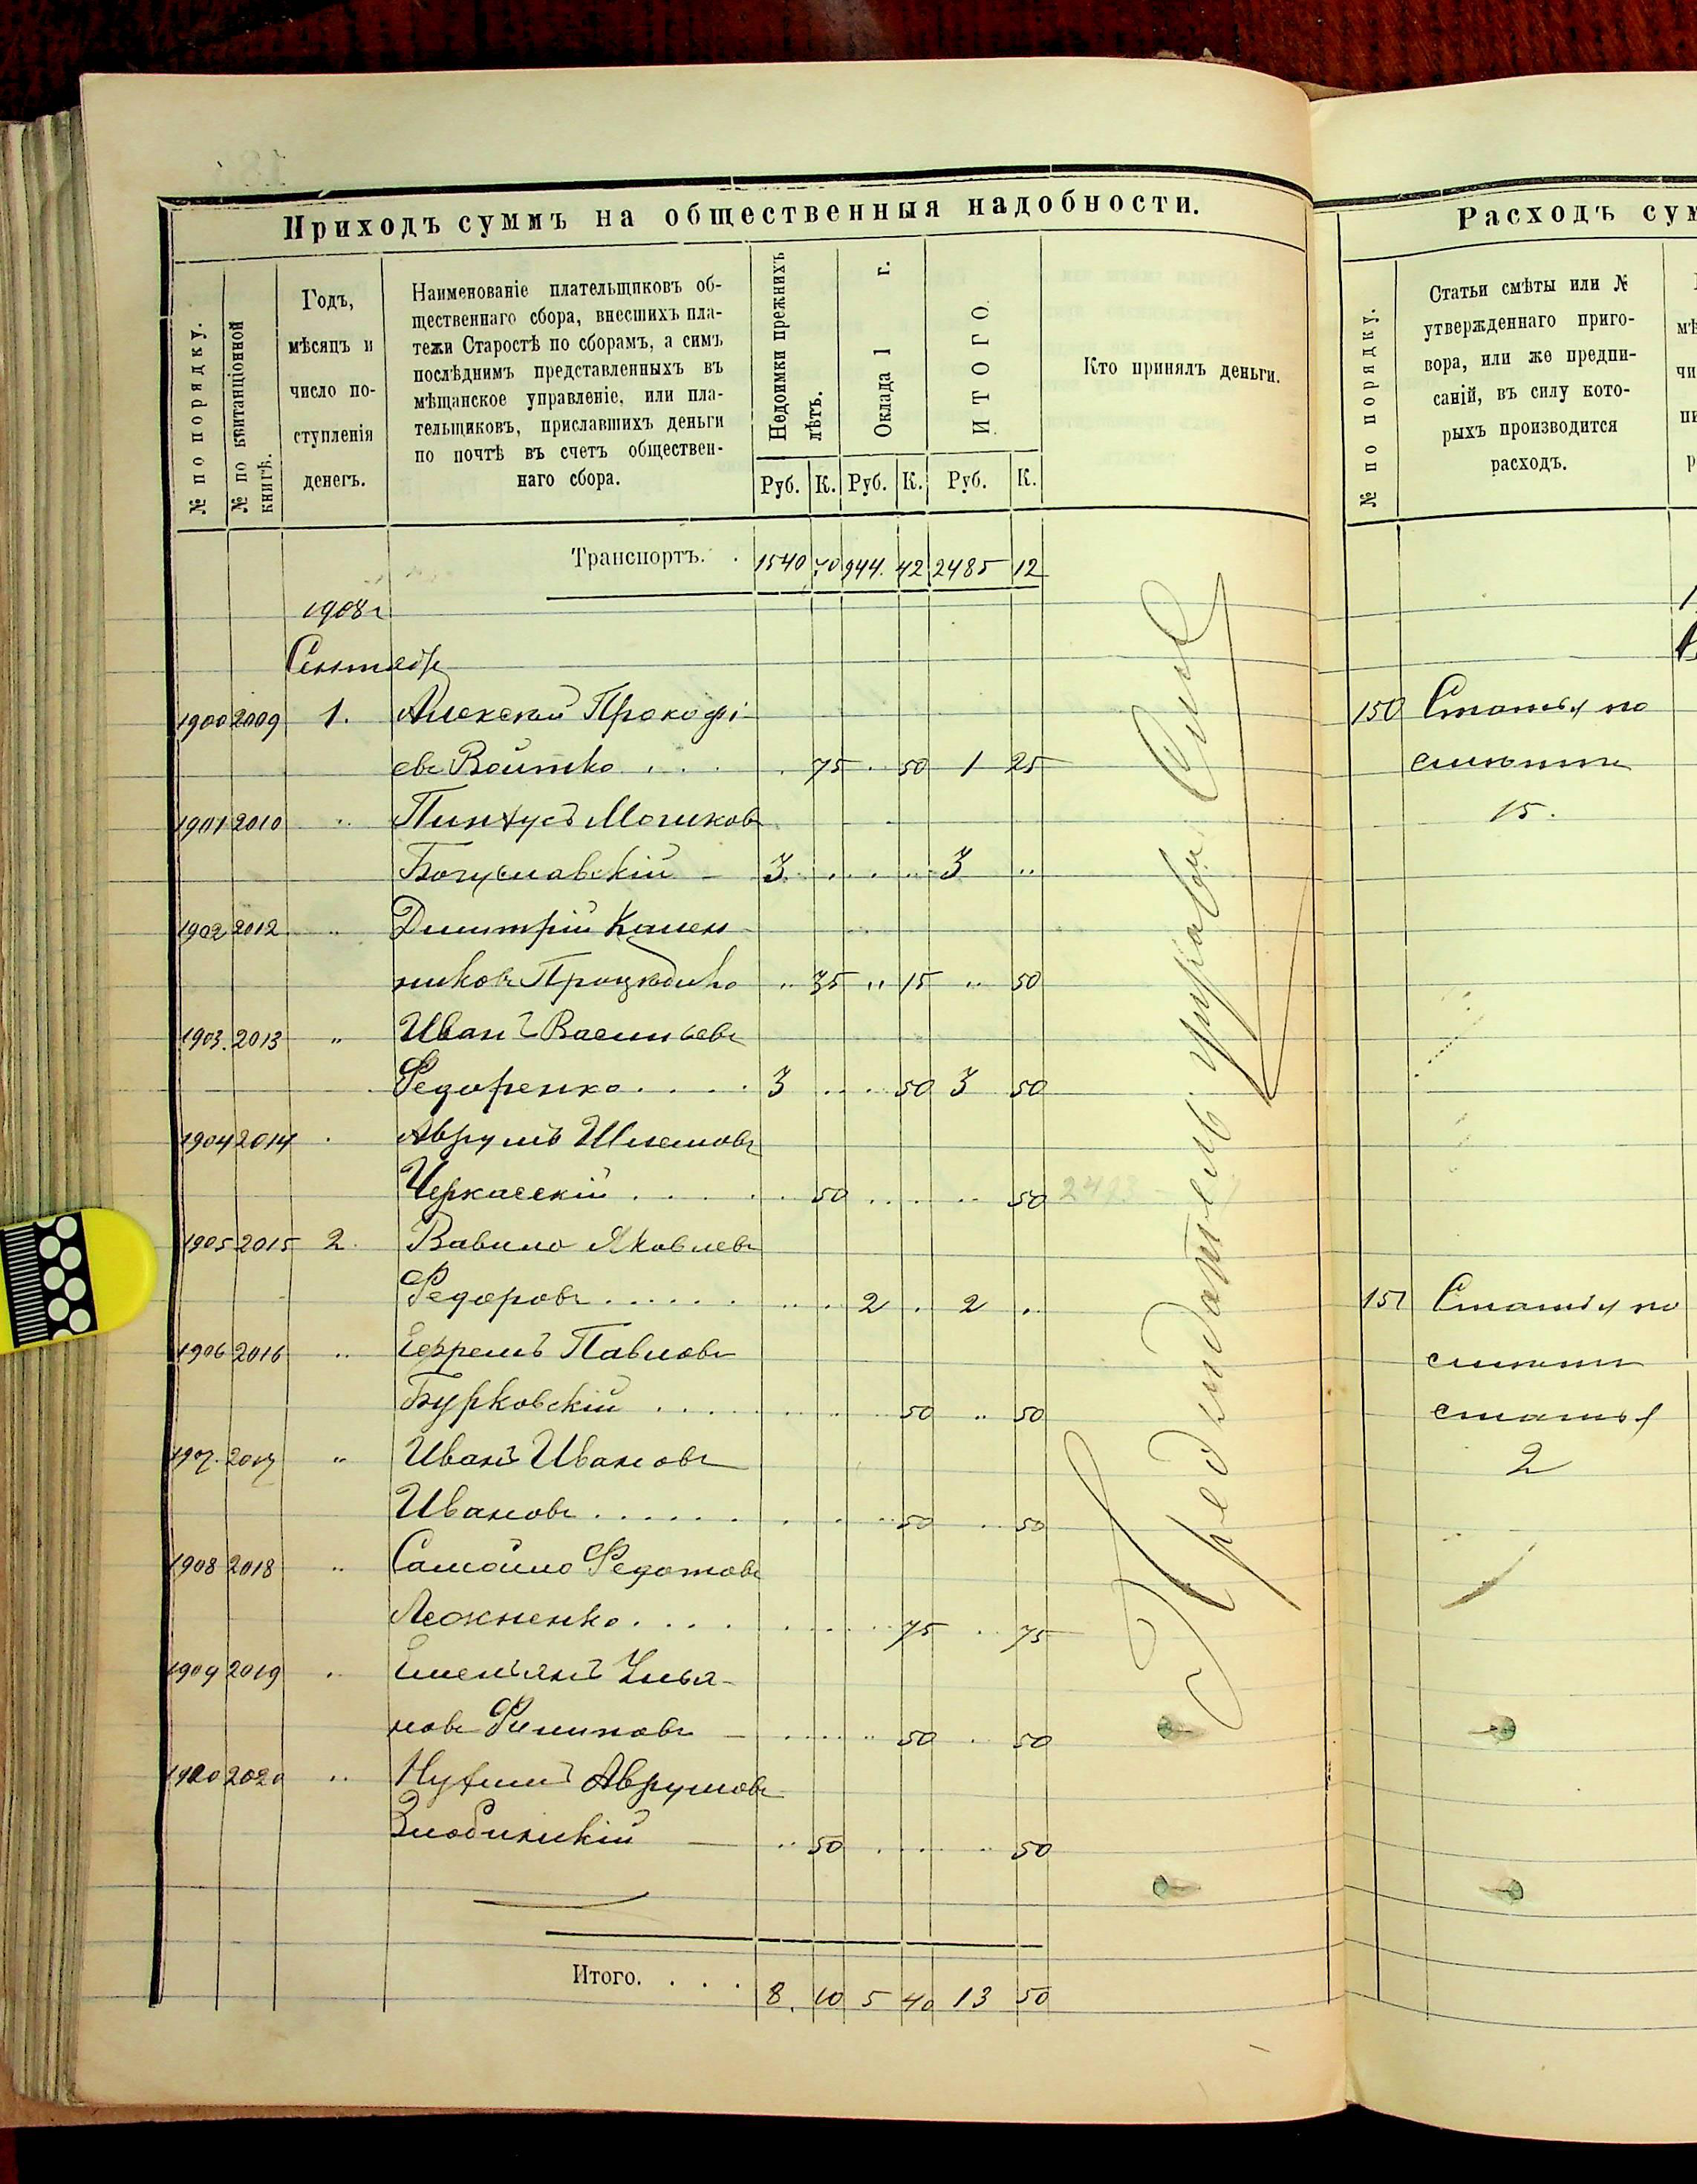 Приходъ суммъ на общественныя надобности.
№ по порядку.
№ по квитанціонной книгѣ.
Годъ,
мѣсяцъ и
число по-
ступленія
денегъ.
Наименованіе плательщиковъ об-
щественнаго сбора, внесшихъ пла-
тежи Старостѣ по сборамъ, а симъ
послѣднимъ представленныхъ въ
мѣщанское управленіе, или пла-
тельщиковъ, приславшихъ деньги
по почтѣ въ счетъ обществен-
наго сбора.
Недоимки прежнихъ лѣтъ.
Оклада 1 г.
ИТОГО.
Руб. К. Руб. К. Руб. К.
Кто принялъ деньги.
Транспортъ. . 1540 70 944. 42 2485 12
1908 г
Сентябр
1900 2009 1. Алексей Прокофі-
евъ Войтко . . . 75 50 1 25
1901 2010 " Пинхусъ Мошковъ
Богуславскій 3 3 "
1902 2012 " Димитрій Калин
никовъ Проценко " 35 " 15 " 50
1903. 2013 " Иванъ Васильевъ
Федоренко . . . . 3 50 3 50
1904 2014 . Аврумъ Шлемовъ
Черкасскій . . . . 50 50
1905 2015 2. Вавило Яковлевъ
Федоровъ . . . . . 2 . 2 "
1906 2016 " Ефремъ Павловъ
Бурковскій . . . . 50 " 50
1907. 2017 " Иванъ Ивановъ
Ивановъ . . . . . . 50 . 50
1908 2018 " Самойло Федотовъ
Леоненко . . . . 75 75
1909 2019 " Емельянъ Улья-
новъ Филиповъ 50 . 50
1910 2020 " Нухимъ Аврумовъ
Злобинскій " 50 50
Итого. . . . 8. 10 5 40 13 50
Предсѣдатель управы
Расходъ сум
№ по порядку.
Статьи смѣты или №
утвержденнаго приго-
вора, или же предпи-
саній, въ силу кото-
рыхъ производится
расходъ.
150 Статья по
смѣтѣ
15.
151 Статья по
смѣтѣ
статья
2